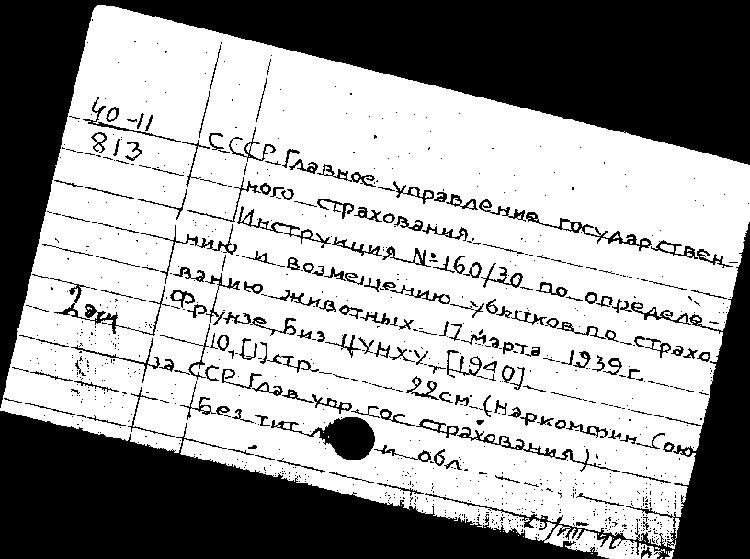 40-11
813
СССР. Главное управление государствен-
ного страхования.
Инструкция №160/30 по определе-
нию и возмещению убытков по страхо-
ванию животных 17 марта 1939 г.
Фрунзе, Биз ЦУНХУ, [1940]
10, [1] стр. 22 см (Наркомфин Сою-
за ССР. Глав. упр. гос. страхования).
Без тит. л. и обл.
2 экз
23/VIII 40